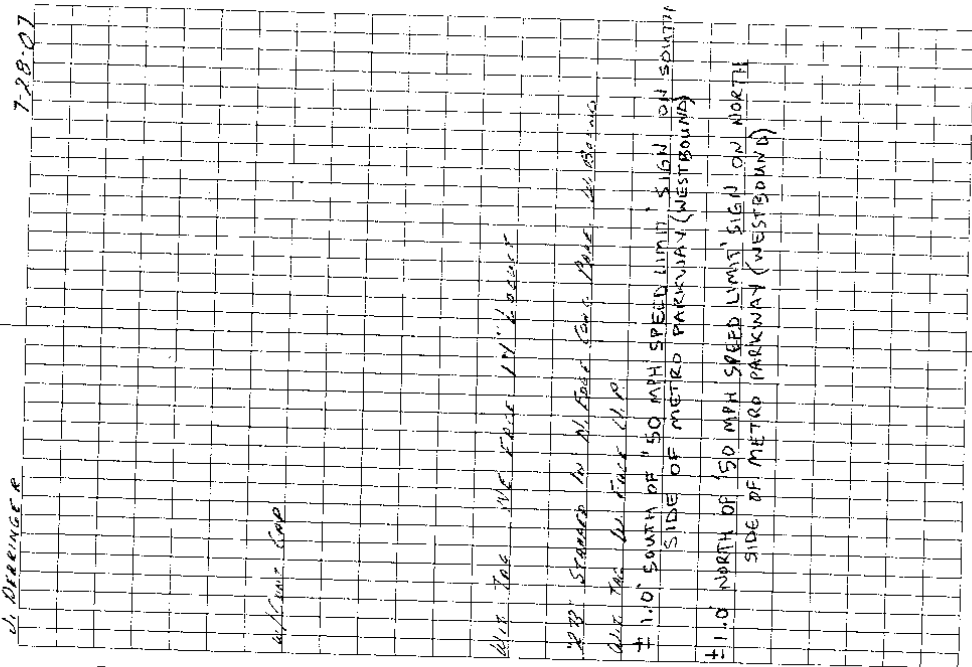 J. DERRINGER 7-28-07
W/CUNT CAP
N&T TAG SW EDGE 14" LOCUST
STAMPED IN N. EDGE CONC. BASE
N&T TAG IN FACE U.P.
± 1.0' SOUTH OF "50 MPH SPEED LIMIT" SIGN ON SOUTH
SIDE OF METRO PARKWAY (WESTBOUND)
± 1.0' NORTH OF '50 MPH SPEED LIMIT' SIGN ON NORTH
SIDE OF METRO PARKWAY (WESTBOUND)